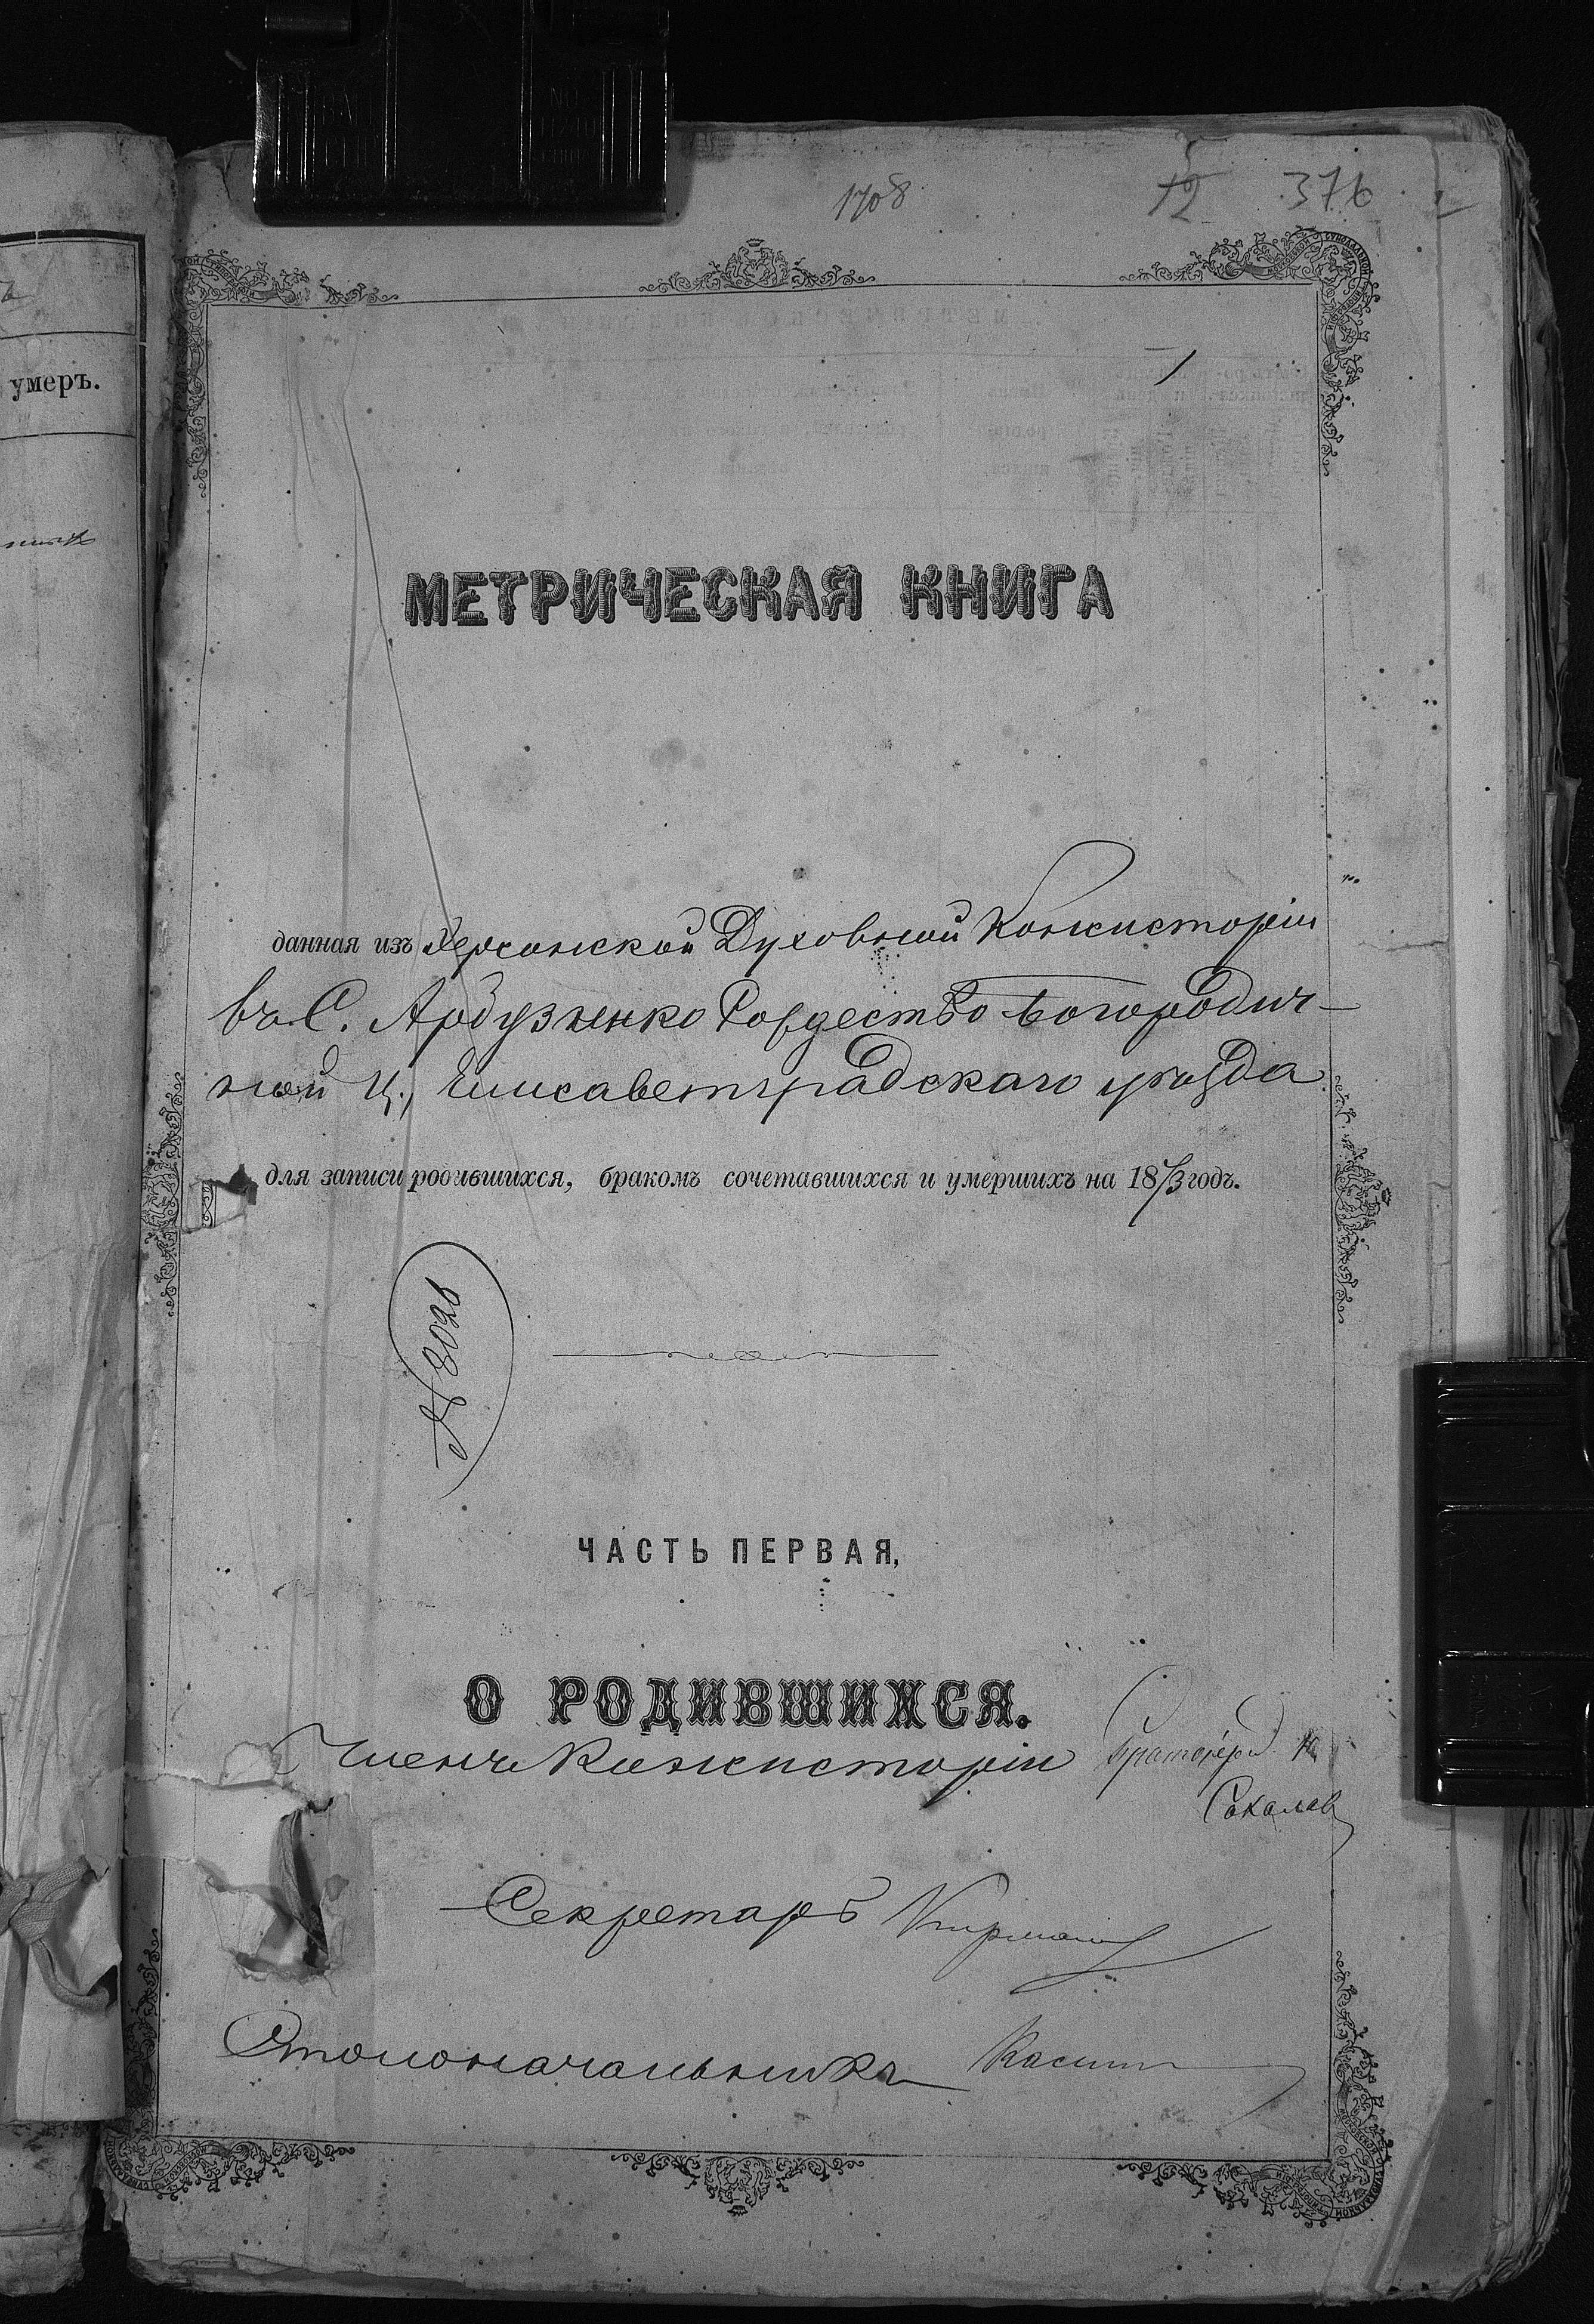 1708 12 376
умеръ.
МЕТРИЧЕСКАЯ КНИГА
данная изъ Херсонской Духовной Консисторіи
въ С. Арбузенко Рождество Богородич-
ной ц., Елисаветградскаго уѣзда
для записи родившихся, бракомъ сочетавшихся и умершихъ на 18 годъ.
№ 8026
ЧАСТЬ ПЕРВАЯ,
О РОДИВШИХСЯ.
Членъ Консисторіи Протоіерей
Соколов
Секретарь
Столоначальникъ